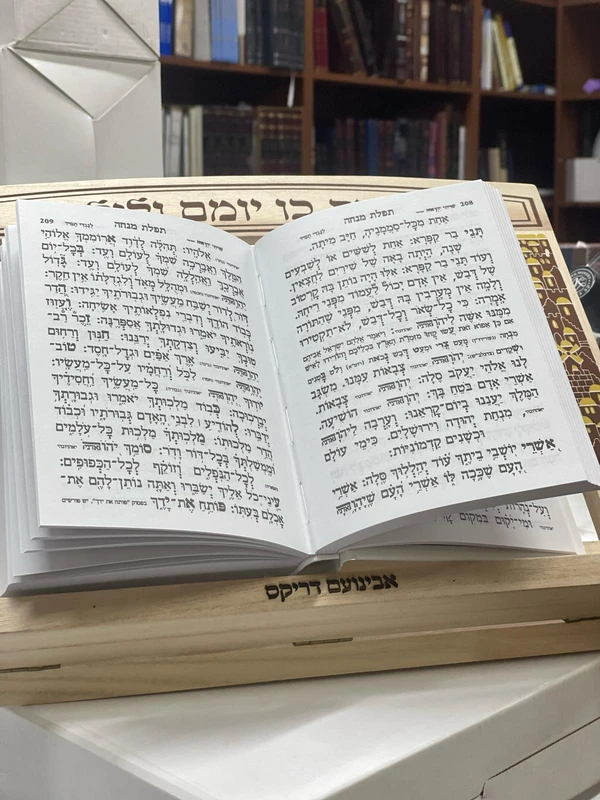 בו יומם
208 תפלת מנחה
אַחַת מִכָּל־סַמְמָנֶיהָ, חַיָּב מִיתָה.
תָּנֵי בַר קַפָּרָא: אַחַת לְשִׁשִּׁים אוֹ לְשִׁבְעִים
שָׁנָה, הָיְתָה בָאָה שֶׁל שִׁירַיִם לַחֲצָאִין
וְעוֹד תָּנֵי בַר קַפָּרָא: אִלּוּ הָיָה נוֹתֵן בָּהּ קָרְטוֹב
שֶׁל דְּבַשׁ, אֵין אָדָם יָכוֹל לַעֲמוֹד מִפְּנֵי רֵיחָהּ.
וְלָמָּה אֵין מְעָרְבִין בָּהּ דְּבַשׁ, מִפְּנֵי שֶׁהַתּוֹרָה
אָמְרָה: כִּי כָל־שְׂאֹר וְכָל־דְּבַשׁ, לֹא־תַקְטִירוּ
מִמֶּנּוּ אִשֶּׁה לַ
צְבָאוֹת עִמָּנוּ, מִשְׂגָּב
לָנוּ אֱלֹהֵי יַעֲקֹב סֶלָה: צְבָאוֹת,
אַשְׁרֵי אָדָם בֹּטֵחַ בָּךְ: הוֹשִׁיעָה,
הַמֶּלֶךְ יַעֲנֵנוּ בְיוֹם־קָרְאֵנוּ: וְעָרְבָה לַ
מִנְחַת יְהוּדָה וִירוּשָׁלָיִם, כִּימֵי עוֹלָם
וּכְשָׁנִים קַדְמוֹנִיּוֹת:
אַשְׁרֵי יוֹשְׁבֵי בֵיתֶךָ עוֹד יְהַלְלוּךָ סֶּלָה: אַשְׁרֵי
הָעָם שֶׁכָּכָה לּוֹ אַשְׁרֵי הָעָם
209 תפלת מנחה
אֱלֹהָיו: תְּהִלָּה לְדָוִד אֲרוֹמִמְךָ אֱלוֹהַי
הַמֶּלֶךְ וַאֲבָרְכָה שִׁמְךָ לְעוֹלָם וָעֶד: בְּכָל־יוֹם
אֲבָרְכֶךָּ וַאֲהַלְלָה שִׁמְךָ לְעוֹלָם וָעֶד: גָּדוֹל
וּמְהֻלָּל מְאֹד וְלִגְדֻלָּתוֹ אֵין חֵקֶר:
דּוֹר לְדוֹר יְשַׁבַּח מַעֲשֶׂיךָ וּגְבוּרֹתֶיךָ יַגִּידוּ: הֲדַר
כְּבוֹד הוֹדֶךָ וְדִבְרֵי נִפְלְאֹתֶיךָ אָשִׂיחָה: וֶעֱזוּז
נוֹרְאֹתֶיךָ יֹאמֵרוּ וּגְדוּלָּתְךָ אֲסַפְּרֶנָּה: זֵכֶר רַב־
טוּבְךָ יַבִּיעוּ וְצִדְקָתְךָ יְרַנֵּנוּ: חַנּוּן וְרַחוּם
אֶרֶךְ אַפַּיִם וּגְדָל־חָסֶד: טוֹב־
לַכֹּל וְרַחֲמָיו עַל־כָּל־מַעֲשָׂיו:
כָּל־מַעֲשֶׂיךָ וַחֲסִידֶיךָ
יְבָרְכוּכָה: כְּבוֹד מַלְכוּתְךָ יֹאמֵרוּ וּגְבוּרָתְךָ
יְדַבֵּרוּ: לְהוֹדִיעַ לִבְנֵי הָאָדָם גְּבוּרֹתָיו וּכְבוֹד
הֲדַר מַלְכוּתוֹ: מַלְכוּתְךָ מַלְכוּת כָּל־עֹלָמִים
וּמֶמְשַׁלְתְּךָ בְּכָל־דּוֹר וָדֹר: סוֹמֵךְ
לְכָל־הַנֹּפְלִים וְזוֹקֵף לְכָל־הַכְּפוּפִים:
עֵינֵי־כֹל אֵלֶיךָ יְשַׂבֵּרוּ וְאַתָּה נוֹתֵן־לָהֶם אֶת־
אָכְלָם בְּעִתּוֹ: פּוֹתֵחַ אֶת־יָדֶךָ
אבינועם דריקס